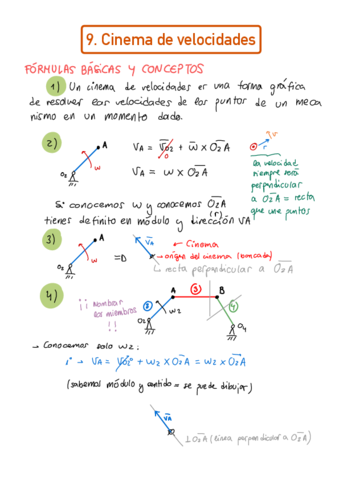 9. Cinema de velocidades
FÓRMULAS BÁSICAS Y CONCEPTOS
1) Un cinema de velocidades es una forma gráfica
de resolver las velocidades de los puntos de un meca
nismo en un momento dado.
2) A O2 w VA = VO2 + w x O2A
0
VA = w x O2A
v r
la velocidad
siempre será
perpendicular
a O2A = recta
que une puntos
Si conocemos w y conocemos O2A (r)
tienes definito en módulo y dirección VA
3) A O2 w =D VA → Cinema
→ origen del cinema (bancada)
recta perpendicular a O2A
4) ¡¡ Nombrar los miembros !!
A 3 B
2 w2 4
O2 O4
→ Conocemos solo w2:
i → VA = VO2 + w2 x O2A = w2 x O2A
(sabemos módulo y sentido = se puede dibujar)
VA
⊥O2A (línea perpendicular a O2A)